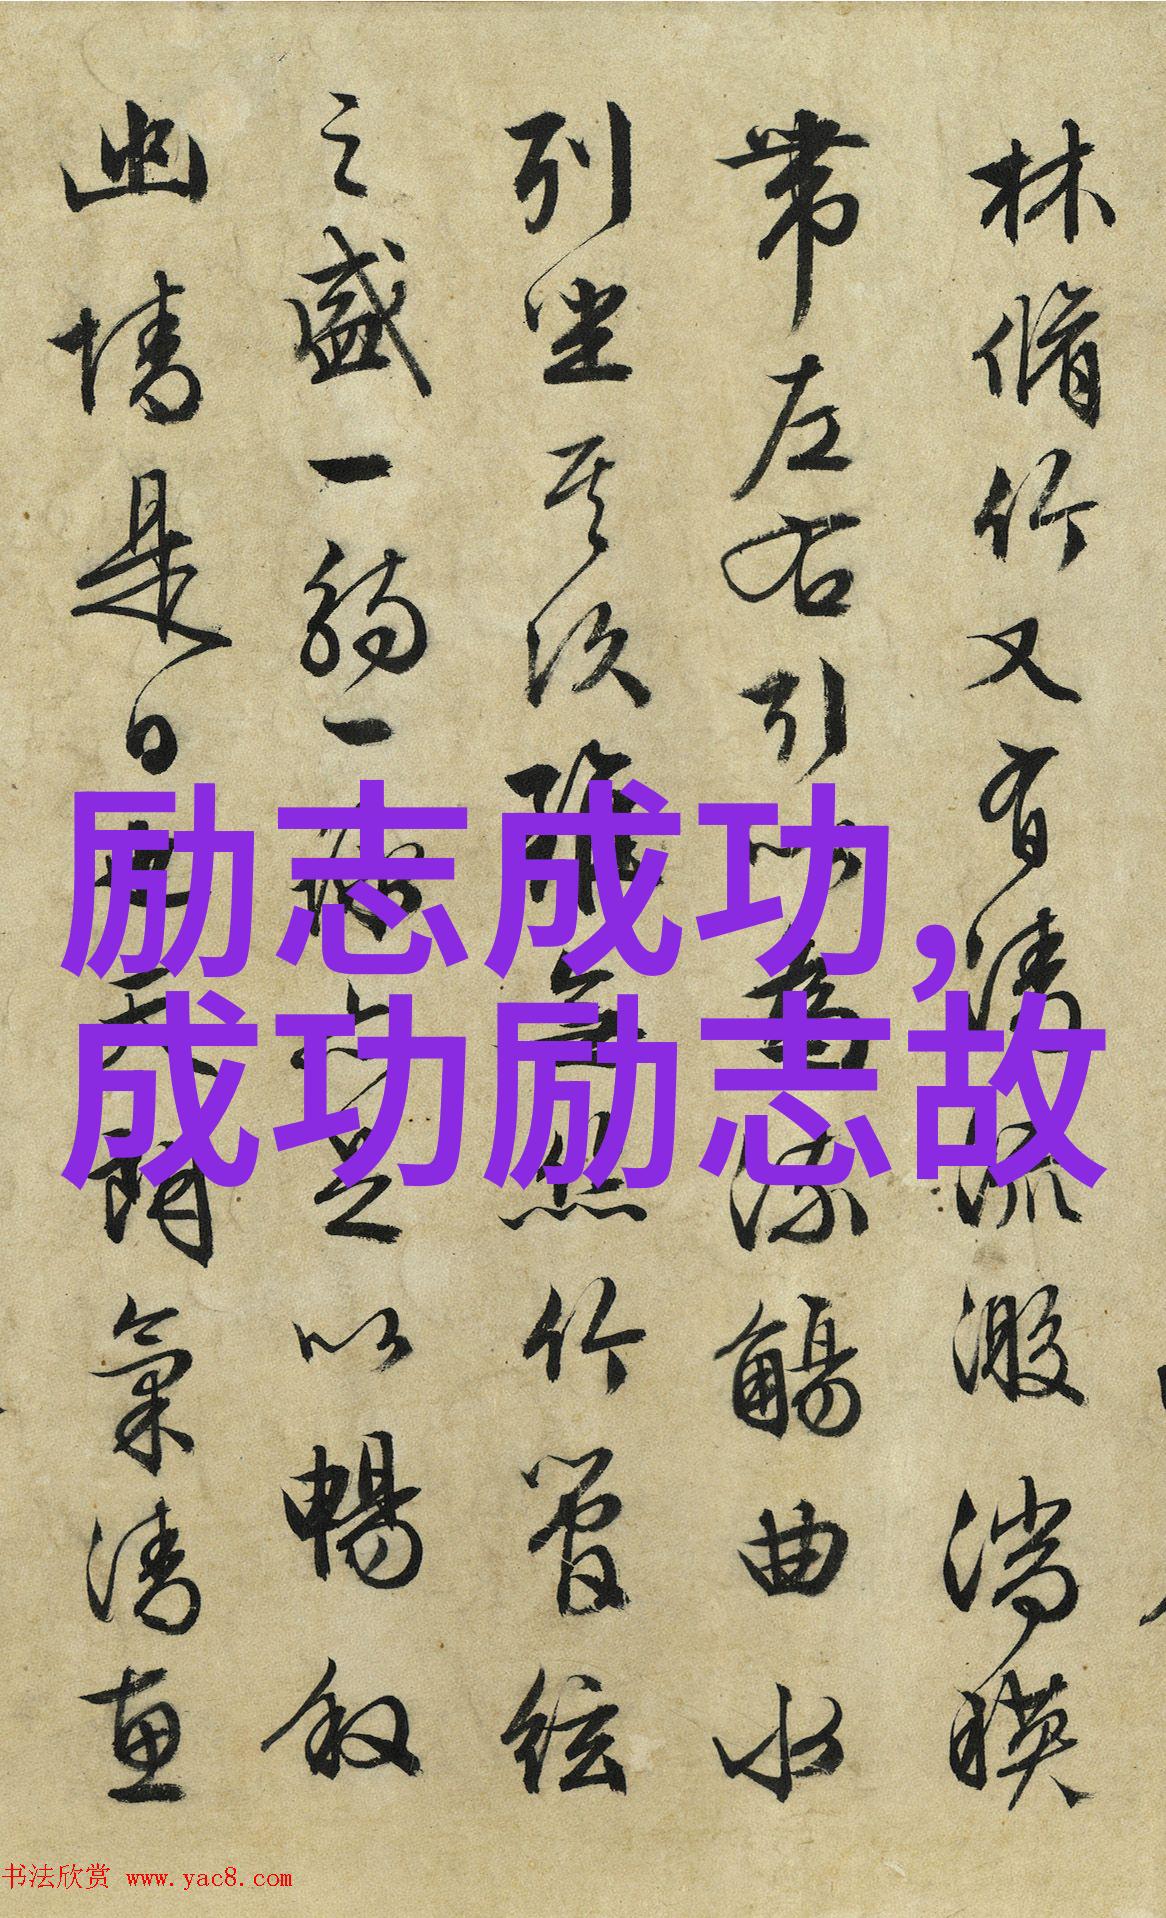 林脩竹又有清流激湍暎
帶左右引以為流觴曲水
列坐其次雖無絲竹管絃
之盛一觴一詠亦足以暢叙
幽情是日也天朗氣清惠
励志成功,
成功励志故
书法欣赏 www.yac8.com